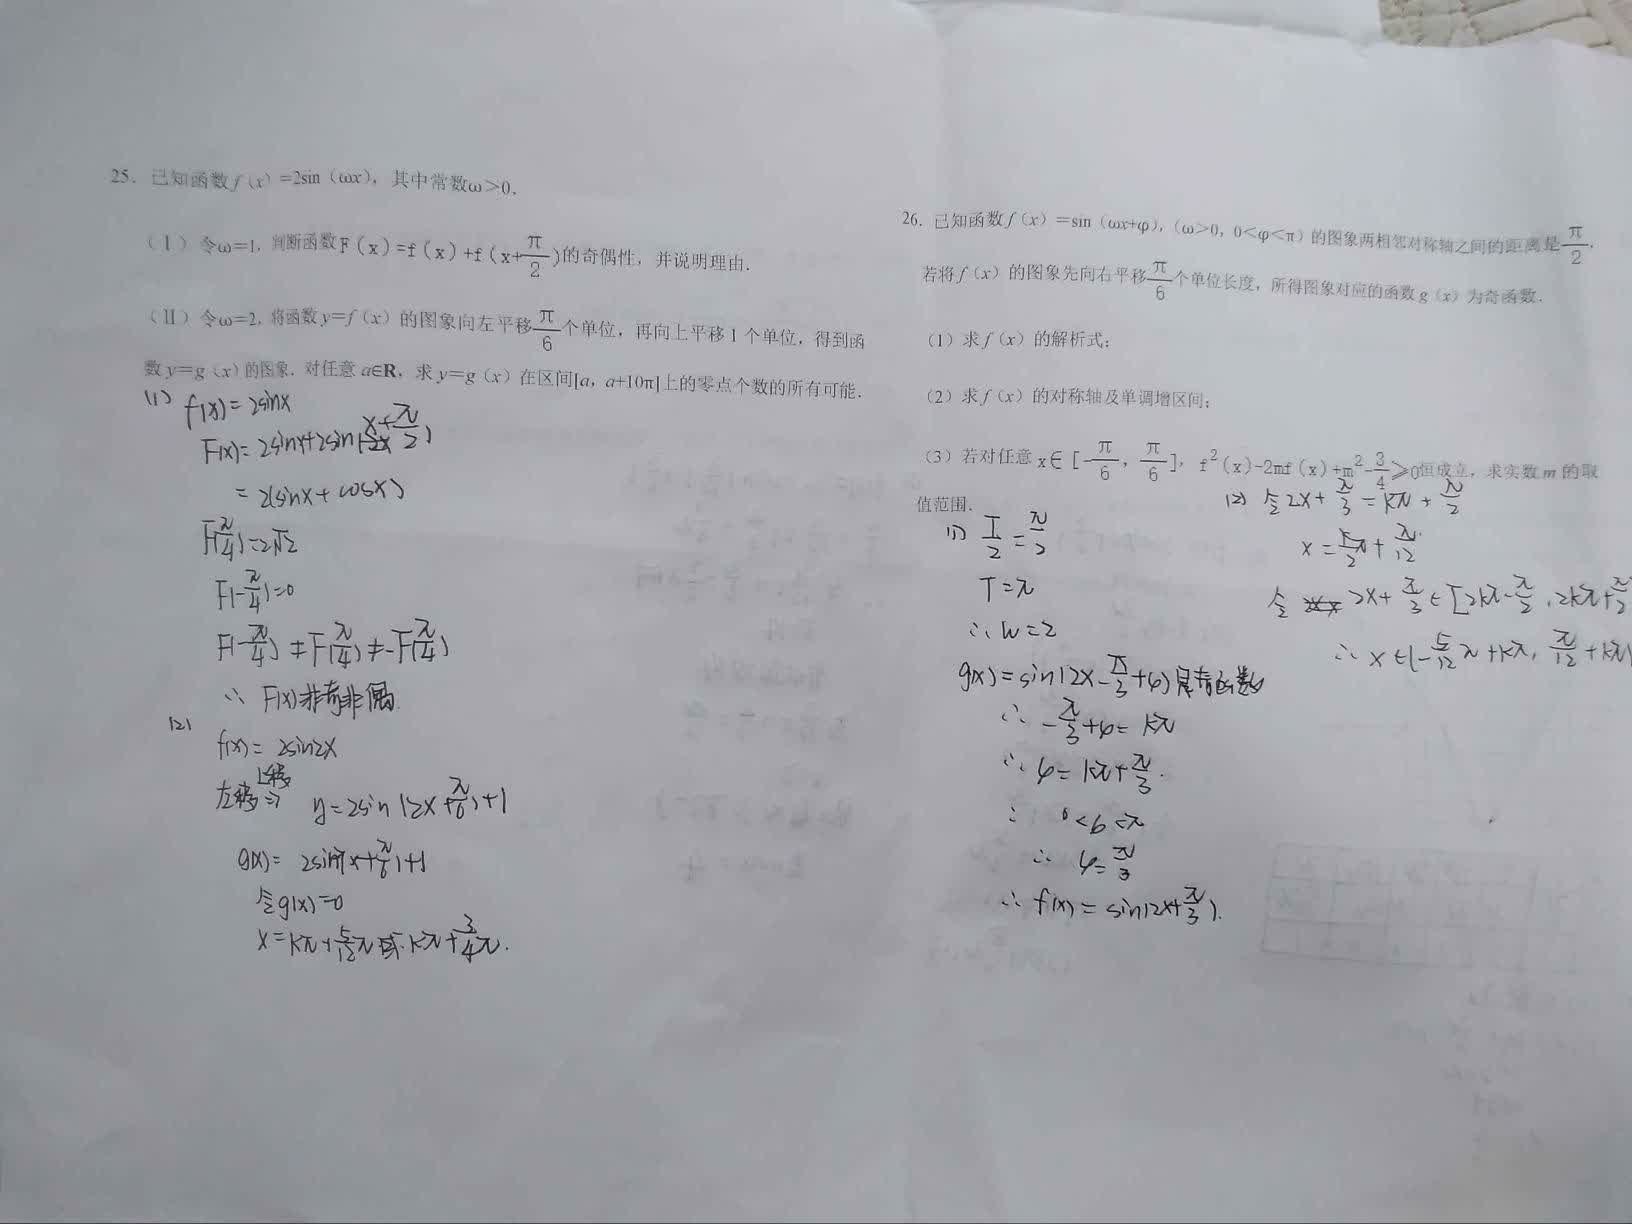 25. 已知函数 f (x) =2sin (ωx), 其中常数ω>0.
(Ⅰ) 令ω=1, 判断函数F(x)=f(x)+f(x+π/2)的奇偶性, 并说明理由.
(Ⅱ) 令ω=2, 将函数 y=f (x) 的图象向左平移π/6个单位, 再向上平移 1 个单位, 得到函
数 y=g (x) 的图象. 对任意 a∈R, 求 y=g (x) 在区间[a, a+10π]上的零点个数的所有可能.
(1) f(x)=2sinx
F(x)=2sinx+2sin(x+π/2)
=2(sinx+cosx)
F(π/4)=2√2
F(-π/4)=0
F(-π/4)≠F(π/4)≠-F(π/4)
∴ F(x)非奇非偶.
(2)
f(x)=2sin2x
上移
左移⇒ y=2sin(2x+π/6)+1
g(x)= 2sin(x+π/6)+1
令g(x)=0
x=kπ+5/12π或 kπ+3/4π.
26. 已知函数 f (x) =sin (ωx+φ), (ω>0, 0<φ<π) 的图象两相邻对称轴之间的距离是π/2,
若将 f (x) 的图象先向右平移π/6个单位长度, 所得图象对应的函数 g (x) 为奇函数.
(1) 求 f (x) 的解析式;
(2) 求 f (x) 的对称轴及单调增区间;
(3) 若对任意 x∈[-π/6, π/6], f²(x)-2mf(x)+m²-3/4≥0恒成立, 求实数 m 的取
值范围.
(1) T/2=π/2
T=π
∴ w=2
g(x)=sin(2x-π/3+φ)是奇函数
∴ -π/3+φ=kπ
∴ φ=kπ+π/3.
∵ 0<φ<π
∴ φ=π/3
∴ f(x)=sin(2x+π/3).
(2) 令 2x+π/3=kπ+π/2
x=k/2π+π/12
令 2x+π/3∈[2kπ-π/2, 2kπ+π/2
∴ x∈[-5/12π+kπ, π/12+kπ]